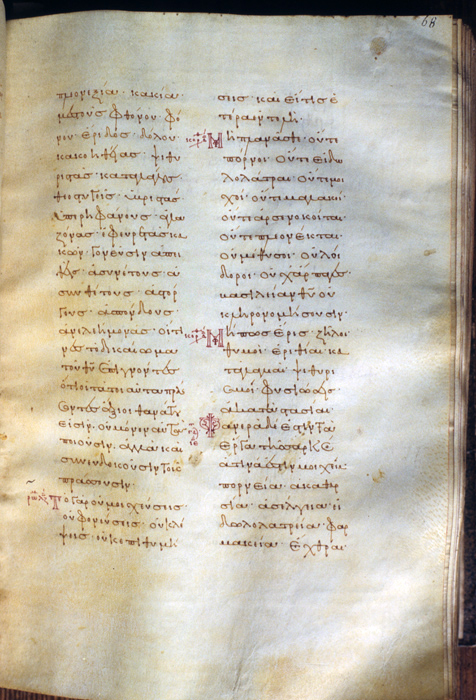 68
πλεονεξία· κακία·
μεστοὺς φθόνου· φό
νου· ἔριδος· δόλου·
κακοηθείας· ψιθυ
ριστάς· καταλάλους·
θεοστυγεῖς· ὑβριστάς·
ὑπερηφάνους· ἀλα
ζόνας· ἐφευρετὰς κα
κῶν· γονεῦσιν ἀπει
θεῖς· ἀσυνέτους· ἀ
συνθέτους· ἀστόρ
γους· ἀσπόνδους·
ἀνελεήμονας· οἵτι
νες τὸ δικαίωμα
τοῦ θυ ἐπιγνόντες
ὅτι οἱ τὰ τοιαῦτα πράσ
σοντες ἄξιοι θανάτου
εἰσίν· οὐ μόνον αὐτὰ
ποιοῦσιν· ἀλλὰ καὶ
συνευδοκοῦσιν τοῖς
πράσσουσιν·
Τὸ γὰρ οὐ μοιχεύσεις·
οὐ φονεύσεις· οὐ κλέ
ψεις· οὐκ ἐπιθυμή
σεις· καὶ εἴ τις ἑ
τέρα ἐντολή·
Μὴ πλανᾶσθε· οὔτε
πόρνοι· οὔτε εἰδω
λολάτραι· οὔτε μοι
χοί· οὔτε μαλακοί·
οὔτε ἀρσενοκοῖται·
οὔτε πλεονέκται·
οὐ μέθυσοι· οὐ λοί
δοροι· οὐχ ἅρπαγες·
βασιλείαν θυ οὐ
κληρονομήσουσιν·
Μήπως ἔρις· ζῆλοι·
θυμοί· ἐριθεῖαι· κα
ταλαλιαί· ψιθυρι
σμοί· φυσιώσεις·
ἀκαταστασίαι·
Φανερὰ δέ ἐστιν τὰ
ἔργα τῆς σαρκὸς
ἅτινά ἐστιν μοιχεία
πορνεία· ἀκαθαρ
σία· ἀσέλγεια· εἰ
δωλολατρεία· φαρ
μακεία· ἔχθραι·